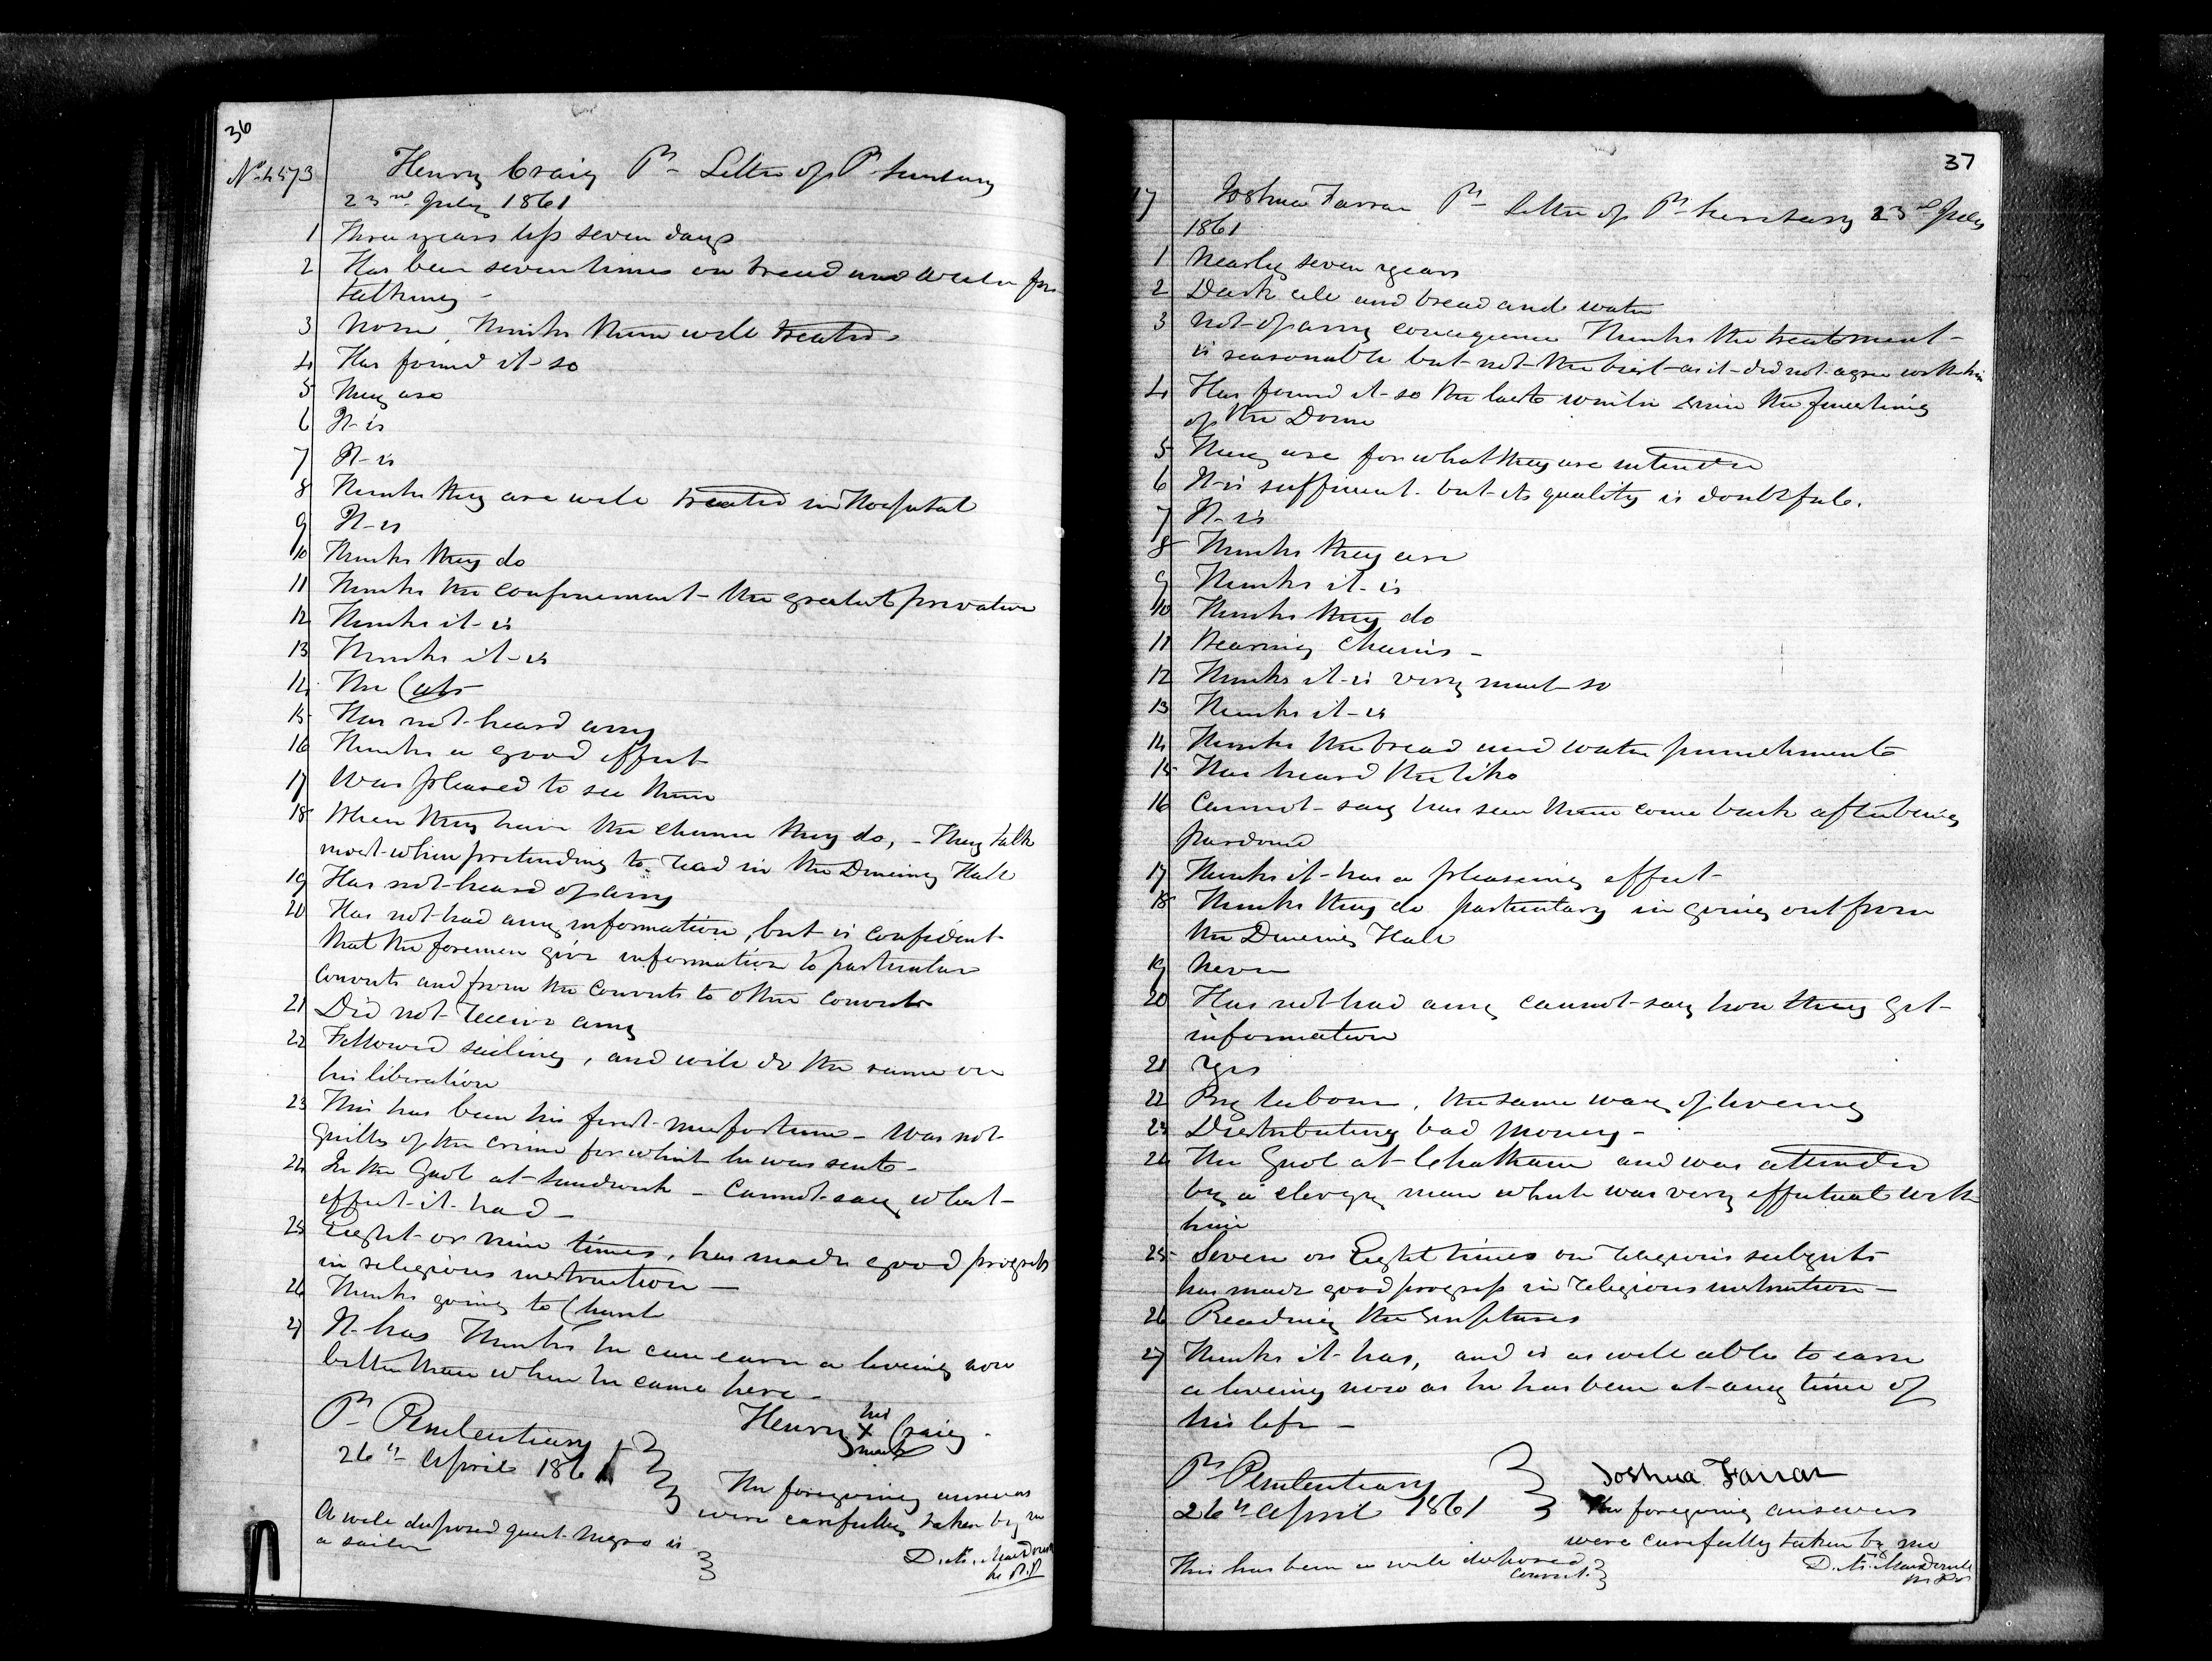 36
No 4573 Henry Craig Pn Letter of P. Secretary
23rd July 1861
1 Three years less seven days
2 Has been seven times on bread and water for
talking -
3 None, Thinks them well treated
4 Has found it so
5 They are
6 It is
7 It is
8 Thinks they are well treated in Hospital
9 It is
10 Thinks they do
11 Thinks the confinement the greatest privation
12 Thinks it is
13 Thinks it is
14 The Cats
15 Has not heard any
16 Thinks a good effect
17 Was pleased to see them
18 When they have the chance they do, - They talk
most when pretending to read in the Dineing Hall
19 Has not heard of any
20 Has not had any information, but is confident
that the foremen give information to particular
convicts and from the convicts to other convicts
21 Did not receive any
22 Followed sailing, and will do the same on
his liberation
23 This has been his first misfortune - Was not
guilty of the crime for which he was sent -
24 In the Gaol at Sandwich - Cannot say what
effect it had -
25 Eight or nine times, has made good progress
in religious instruction -
26 Thinks going to Church
27 It has Thinks he can earn a liveing now
better than when he came here -
Pl Penitentiary
26th April 1861
Henry his X mark Craig
The foregoing answers
were carefully taken by me
A well disposed quiet Negro is
a sailor
37
Joshua Farrar Pn Letter of Pl Secretary 23rd July
1861
1 Nearly seven years
2 Dark cell and bread and water
3 Not of any consequence Thinks the treatment
is reasonable but not the best as it did not agree with him
4 Has found it so the last while since the finishing
of the Dome
5 They are for what they are intended
6 It is sufficient but its quality is doubtful.
7 It is
8 Thinks they are
9 Thinks it is
10 Thinks they do
11 Wearing Chains -
12 Thinks it is very much so
13 Thinks it is
14 Thinks the bread and water punishments
15 Has heard the like
16 Cannot say has seen them come back after being
pardoned
17 Thinks it has a pleaseing effect
18 Thinks they do particulary in going out from
the Dineing Hall
19 Never
20 Has not had any cannot say how they get
information
21 Yes
22 By labour, the same way of liveing
23 Distributing bad money -
24 The Gaol at Chatham and was attended
by a clergy man which was very effectual with
him
25 Seven or Eight times on religious subjects
has made good progress in religious instruction -
26 Reading the Scriptures
27 Thinks it has, and is as well able to earn
a liveing now as he has been at any time of
his life -
Pl Penitentiary
26th April 1861
Joshua Farrar
The foregoing answers
were carefully taken by me
This has been a well disposed
convict